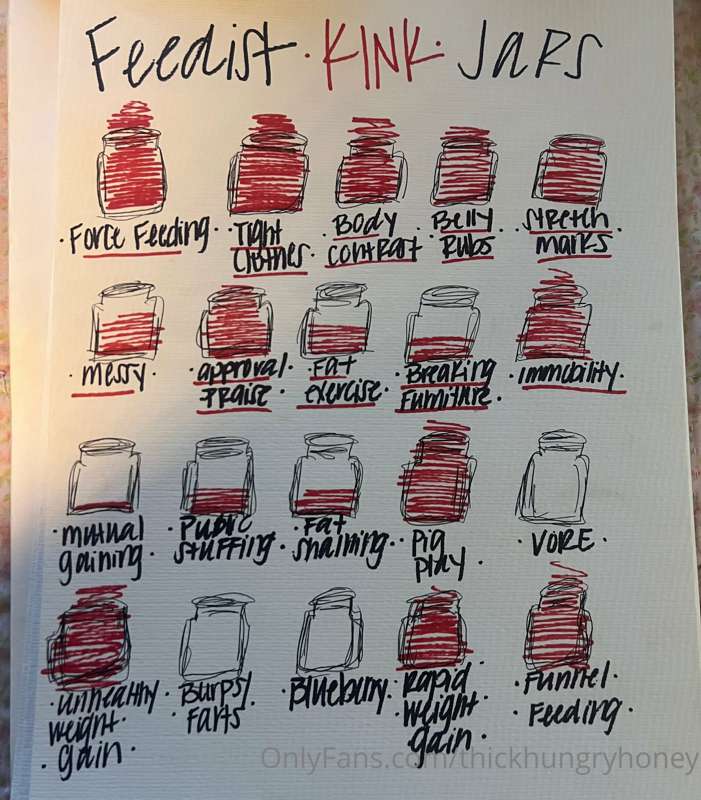 Feedist · KINK · Jars
· Force Feeding ·
· Tight
Clothes ·
· Body
contrast ·
· Belly
Rubs ·
· Stretch
marks ·
· messy ·
· approval
Praise ·
· Fat
exercise ·
· Breaking
Furniture ·
· Immobility ·
· mutual
gaining ·
· Public
stuffing ·
· Fat
shaming ·
· Pig
play ·
· VORE ·
· unhealthy
weight
gain ·
· Burps/
Farts ·
· Blueberry ·
· Rapid
weight
gain ·
· Funnel ·
Feeding ·
OnlyFans.com/thickhungryhoney